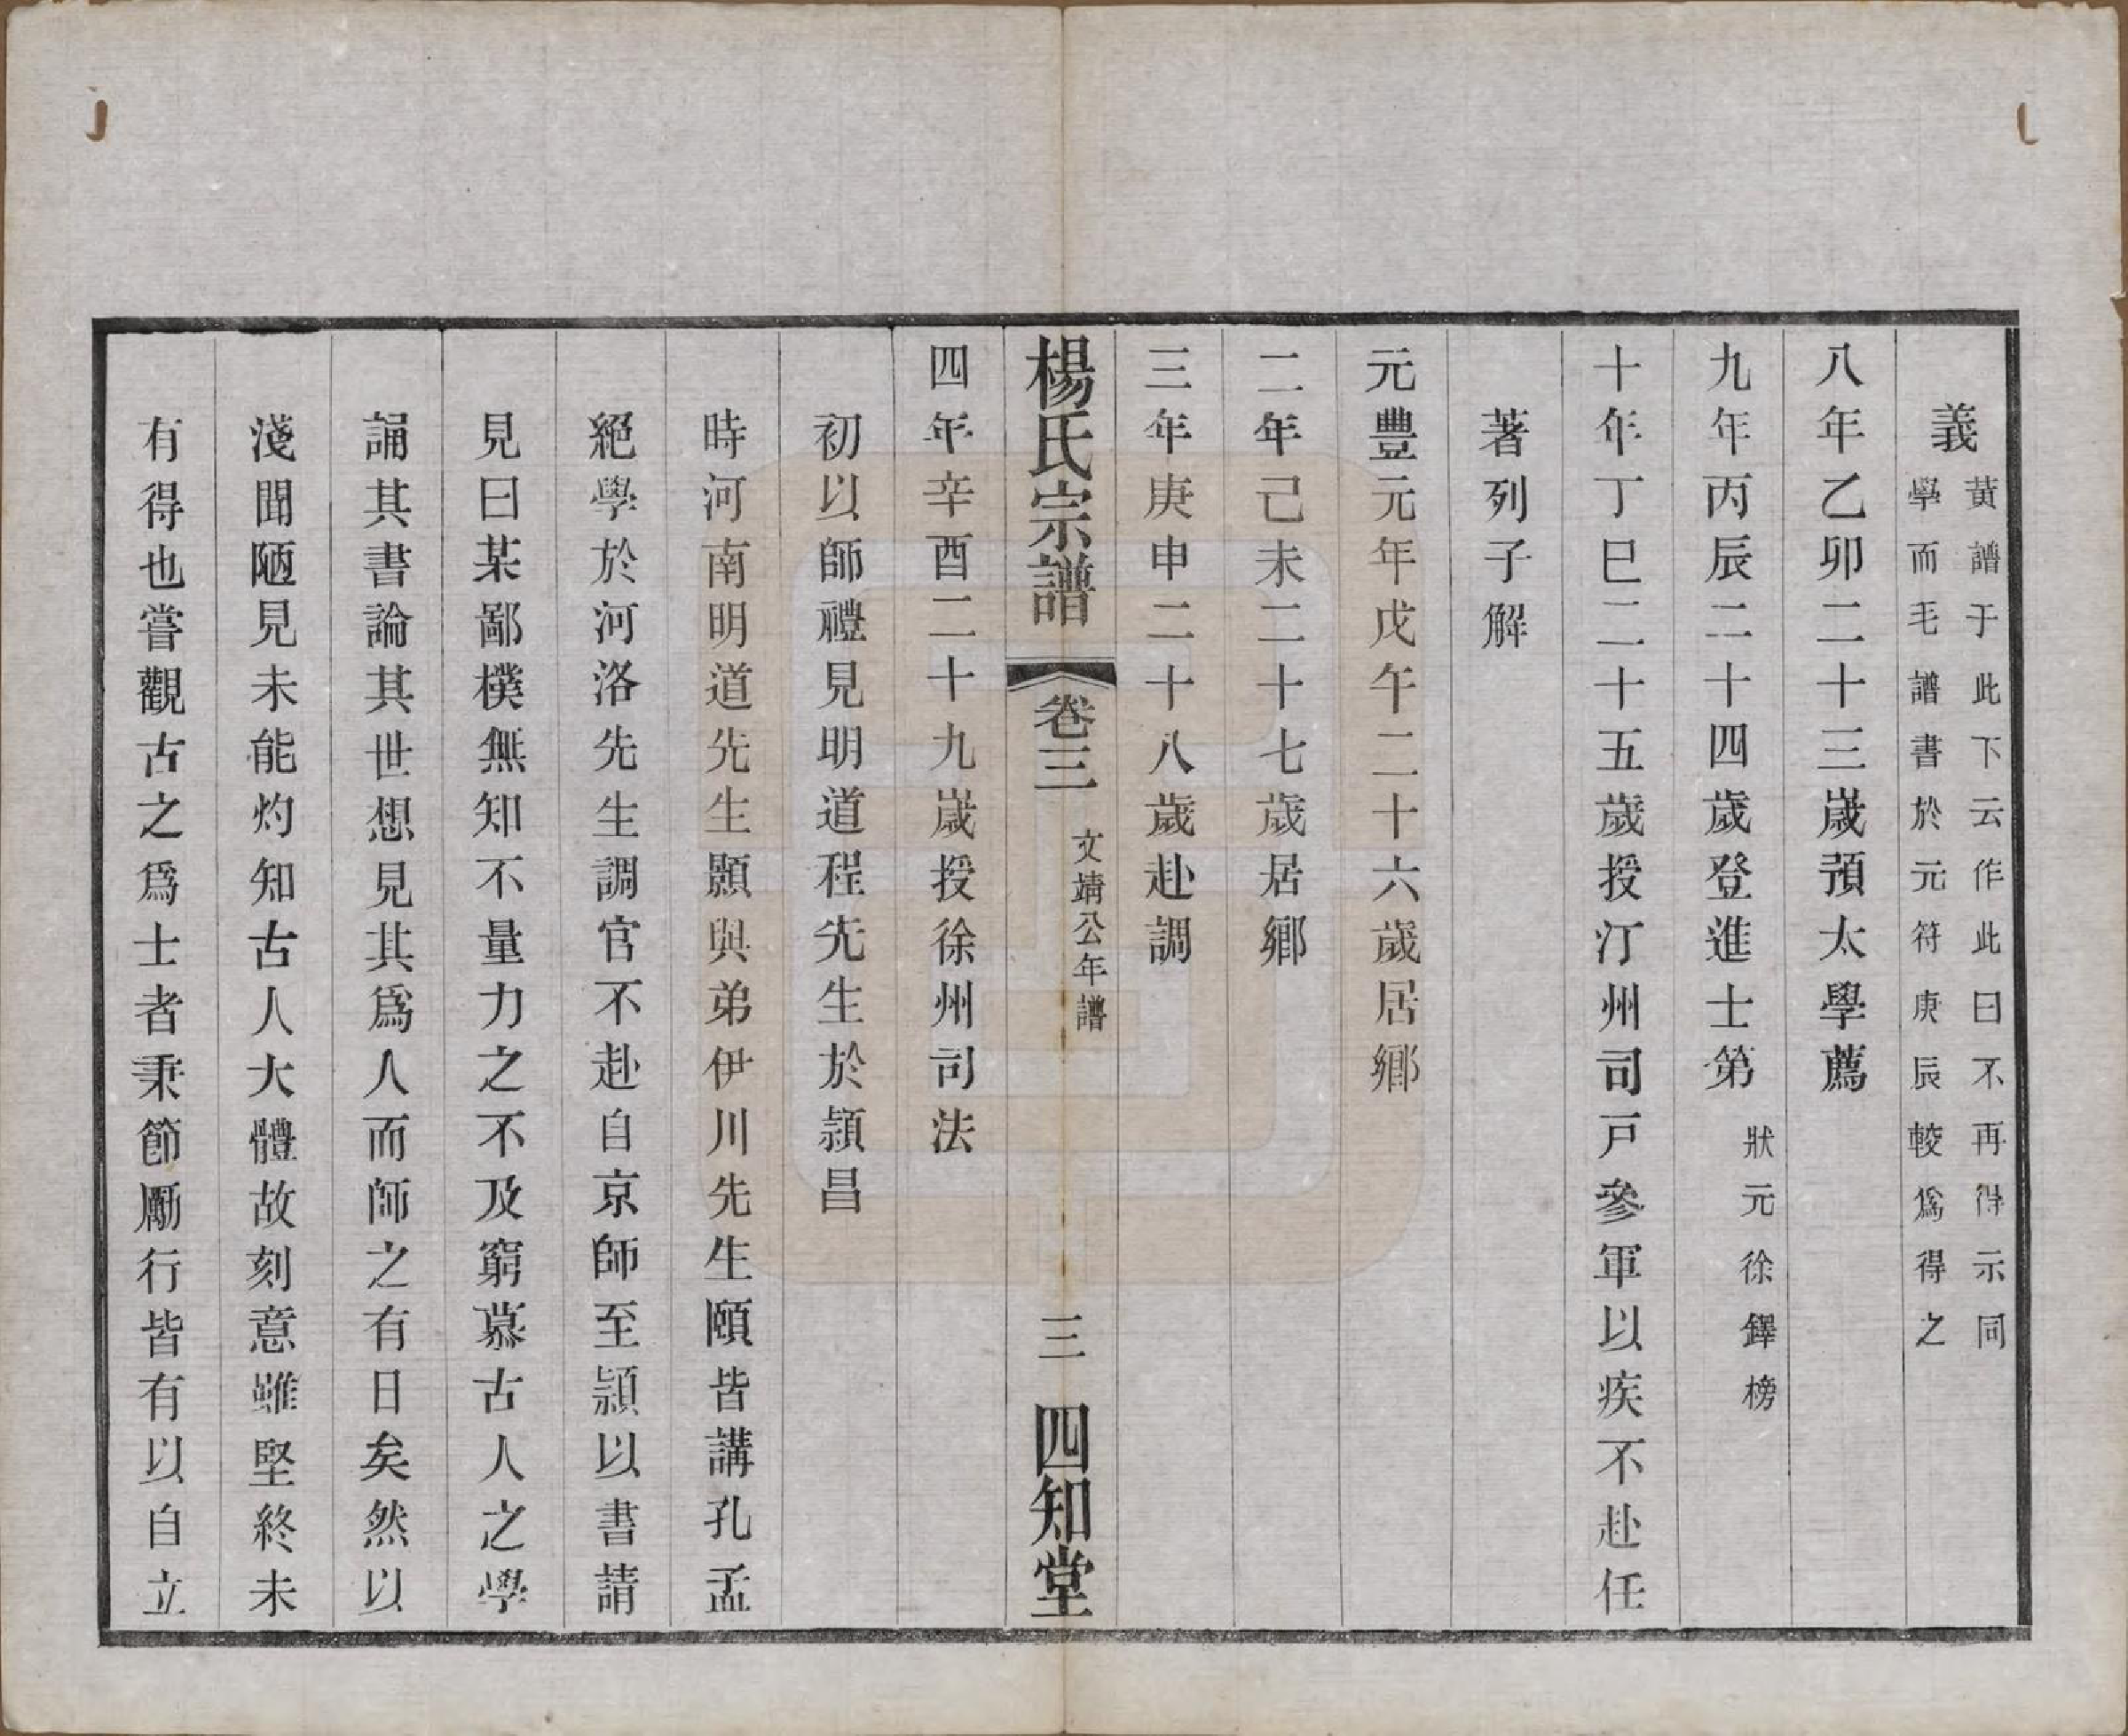 義黃譜于此下云作此曰不再得示同
學而毛譜書於元符庚辰較爲得之
八年乙卯二十三歲預太學薦
九年丙辰二十四歲登進士第狀元徐鐸榜
十年丁巳二十五歲授汀州司戸參軍以疾不赴任
著列子解
元豐元年戊午二十六歲居鄉
二年己未二十七歲居鄉
三年庚申二十八歲赴調
楊氏宗譜 卷三 文靖公年譜 三 四知堂
四年辛酉二十九歲授徐州司法
初以師禮見明道程先生於潁昌
時河南明道先生顥與弟伊川先生頤皆講孔孟
絕學於河洛先生調官不赴自京師至潁以書請
見曰某鄙樸無知不量力之不及窮慕古人之學
誦其書論其世想見其爲人而師之有日矣然以
淺聞陋見未能灼知古人大體故刻意雖堅終未
有得也嘗觀古之爲士者秉節勵行皆有以自立